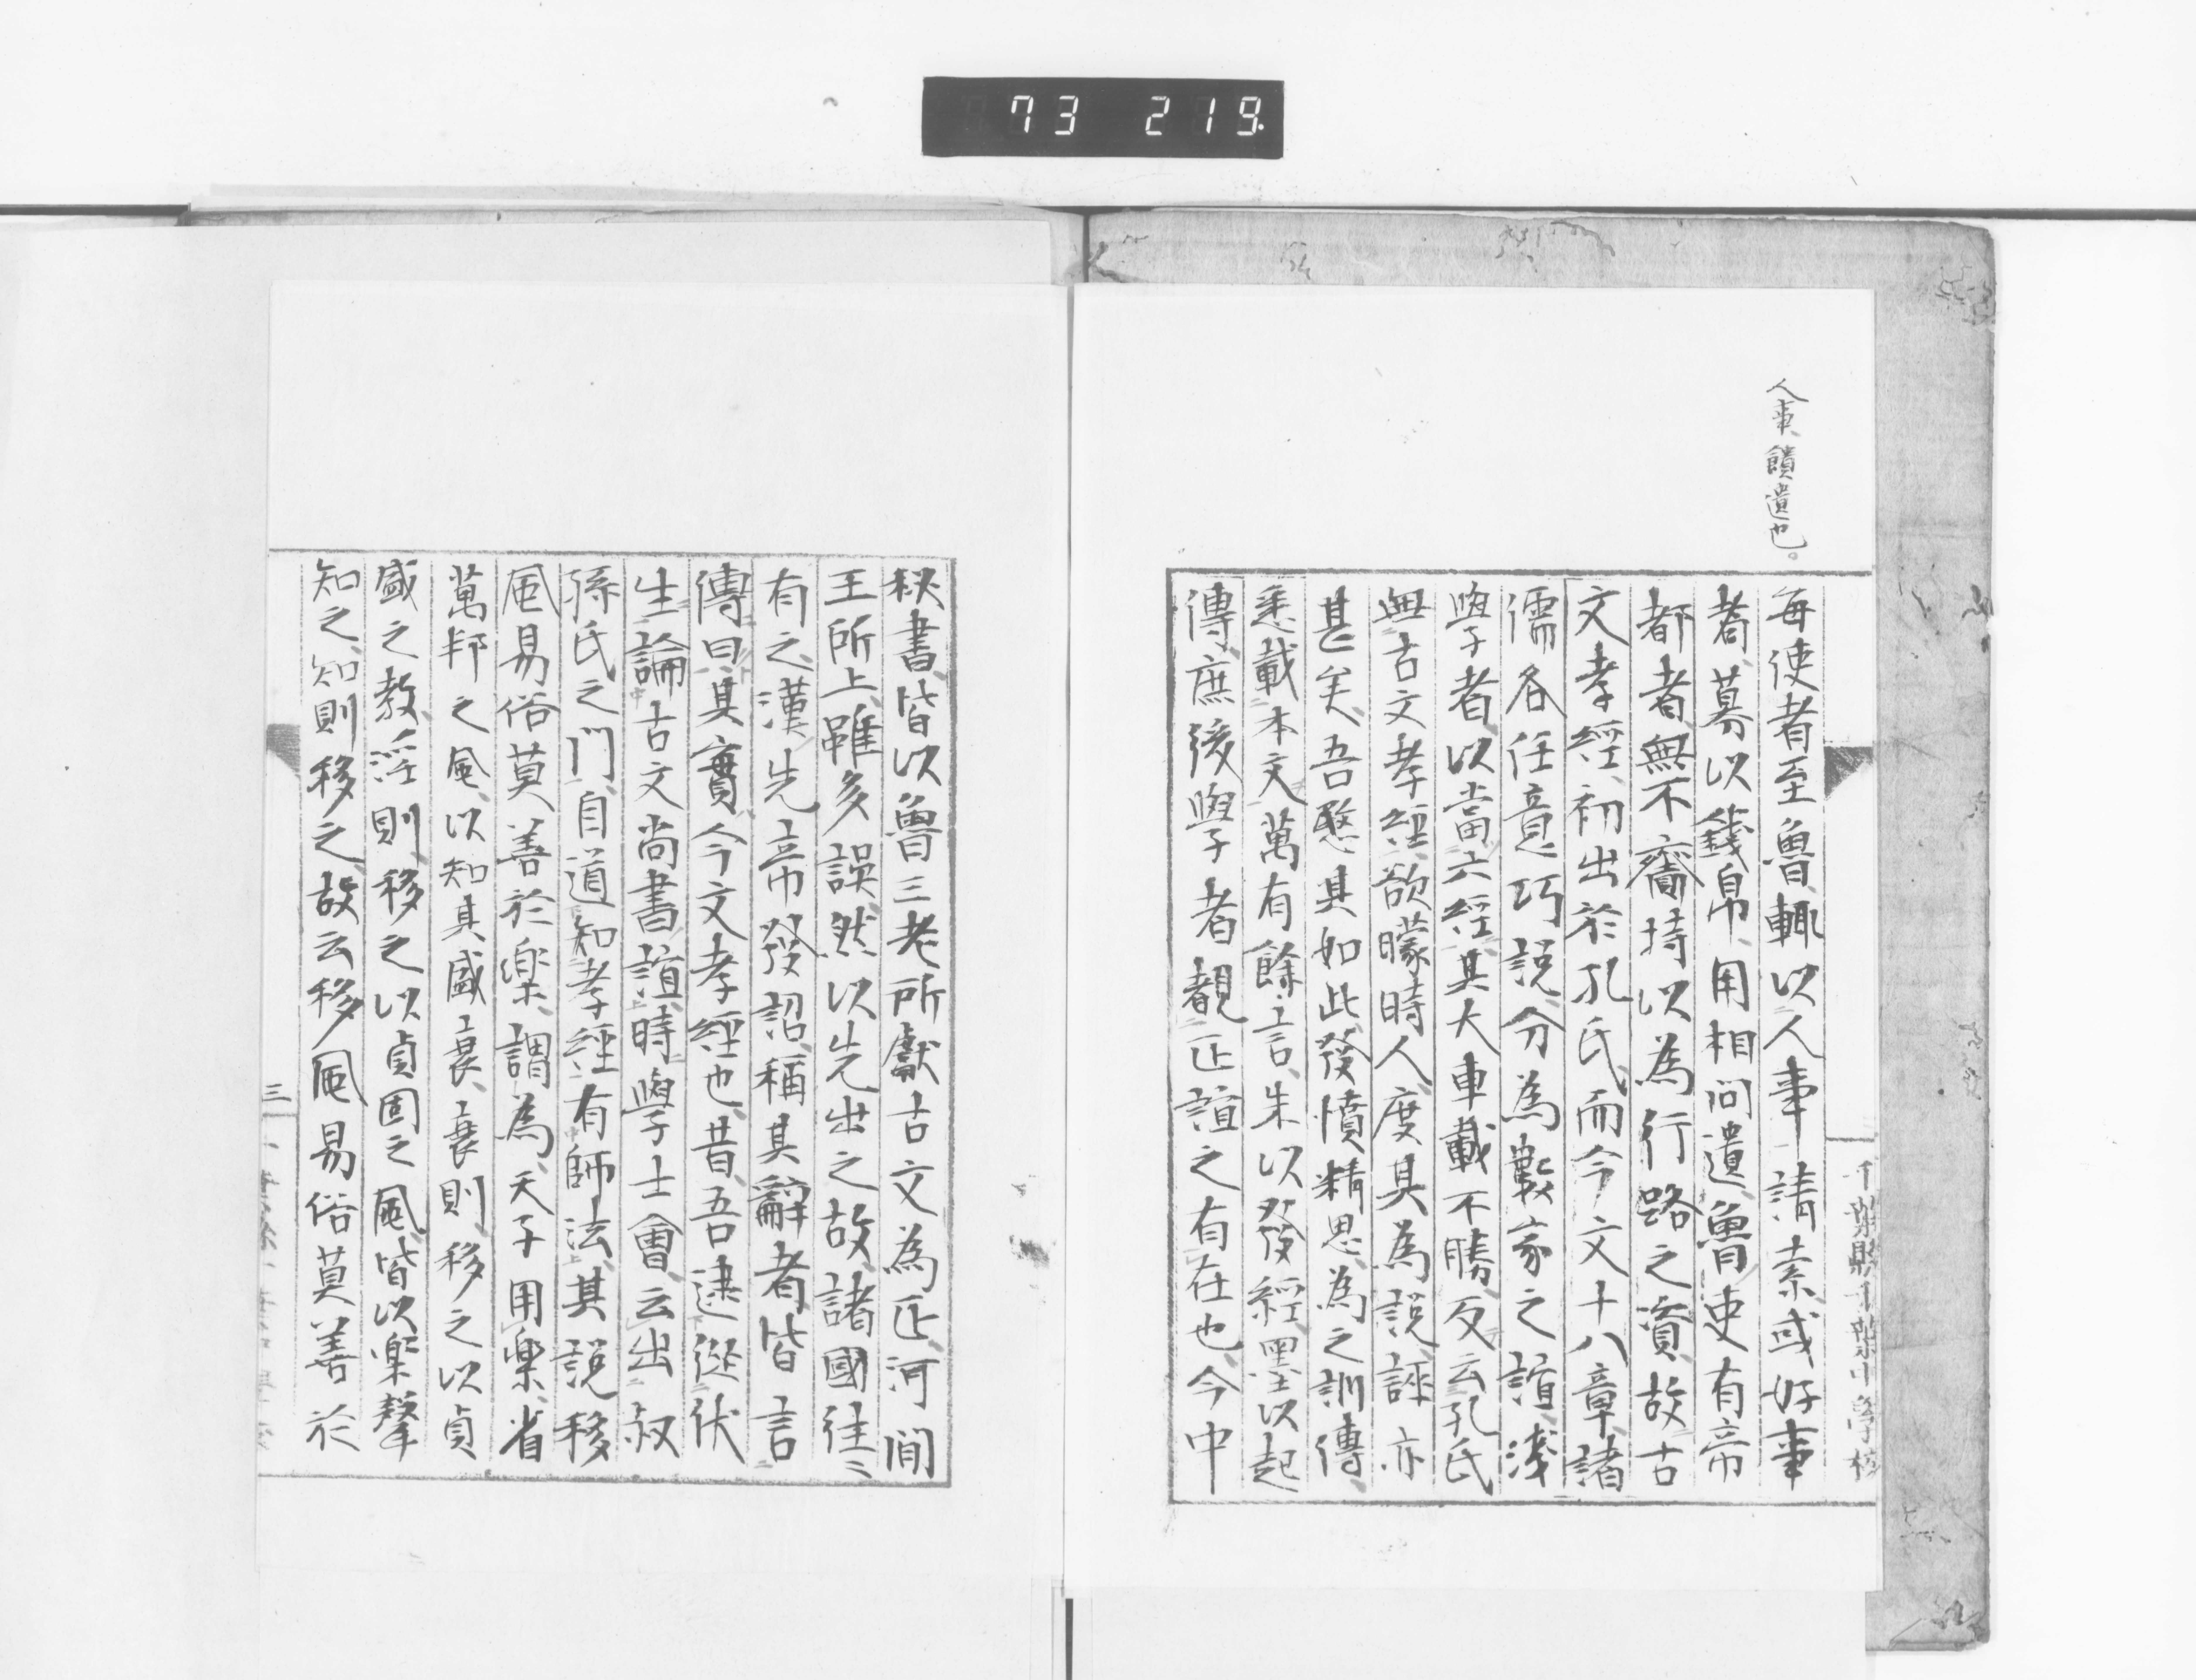 73 219
人事、饋遺也。
千葉縣千葉中學校
每使者至魯、輒以人事請索、或好事
者、募以錢帛、用相問遺、魯吏有帝
都者、無不齎持以為行路之資、故古
文孝經、初出於孔氏、而今文十八章、諸
儒各任意巧説、分為數家之誼、淺
學者、以當六經、其大車載不勝、反云孔氏
無古文孝經、欲矇時人、度其為説、誣亦
甚矣、吾愍其如此、發憤精思、為之訓傳、
悉載本文、萬有餘言、朱以發經、墨以起
傳、庶後學者、覩正誼之有在也、今中
秘書、皆以魯三老所獻古文為正、河間
王所上、雖多誤、然以先出之故、諸國往〻
有之、漢先帝發詔、稱其辭者、皆言
傳曰、其實今文孝經也、昔吾逮從伏
生論古文尚書誼、時學士會、云出叔
孫氏之門、自道知孝經有師法、其説移
風易俗莫善於樂、謂為天子用樂、省
萬邦之風、以知其盛衰、衰則移之以貞
盛之教、淫則移之以貞固之風、皆以樂聲
知之、知則移之、故云移風易俗莫善於
三